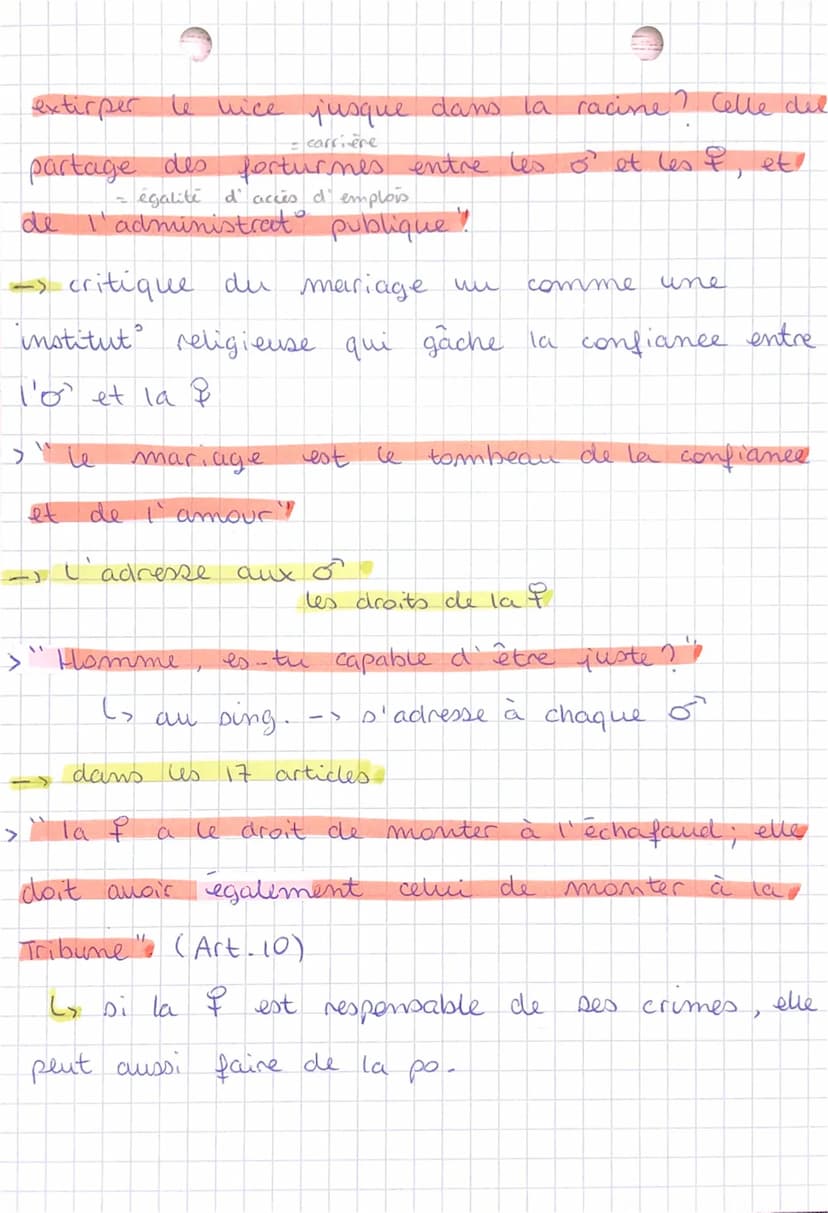 extirper le vice jusque dans la racine? Celle du
= carrière
partage des forturmes entre les ♂ et les ♀, et
= égalité d'accès d'emplois
de l'administrat° publique"
-> critique du mariage vu comme une
institut° religieuse qui gâche la confiance entre
l'♂ et la ♀
> "le mariage est le tombeau de la confiance
et de l'amour"
-> L'adresse aux ♂
les droits de la ♀
> "Homme, es-tu capable d'être juste?"
↳ au sing. -> s'adresse à chaque ♂
-> dans les 17 articles
> "la ♀ a le droit de monter à l'échafaud; elle
doit avoir également celui de monter à la
Tribune" (Art.10)
↳ si la ♀ est responsable de ses crimes, elle
peut aussi faire de la po.